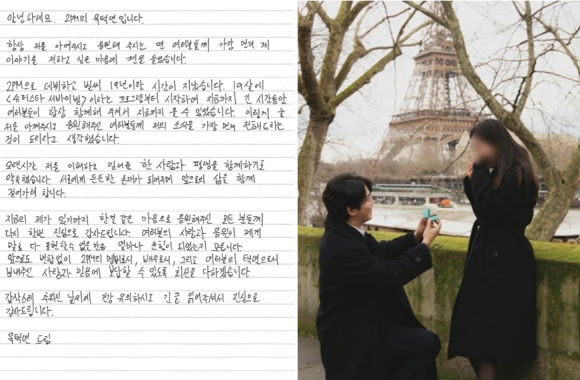 안녕하세요. 2PM의 옥택연입니다.
항상 저를 아껴주시고 응원해 주시는 팬 여러분들께 가장 먼저 제
이야기를 전하고 싶은 마음에 펜을 들었습니다.
2PM으로 데뷔하고 벌써 19년이란 시간이 지났습니다. 19살에
<슈퍼스타 서바이벌>이라는 프로그램부터 시작하여 지금까지 긴 시간동안
여러분들이 항상 함께해 주셔서 지금까지 올 수 있었습니다. 이렇게 늘
저를 아껴주시고 응원해주신 여러분들께 저의 소식을 가장 먼저 전해드리는
것이 도리라고 생각했습니다.
오랜시간 저를 이해하고 믿어준 한 사람과 평생을 함께하기로
약속했습니다. 서로에게 든든한 존재가 되어주며 앞으로의 삶을 함께
걸어가려 합니다.
지금의 제가 있기까지 한결같은 마음으로 응원해주신 모든 분들께
다시 한번 진심으로 감사드립니다. 여러분의 사랑과 응원이 제게
말로 다 표현할 수 없을 만큼 얼마나 큰 힘이 되었는지 모릅니다.
앞으로도 변함없이 2PM의 멤버로서, 배우로서, 그리고 여러분의 택연으로서
보내주신 사랑과 믿음에 보답할 수 있도록 최선을 다하겠습니다.
갑작스레 추워진 날씨에 건강 유의하시고 긴 글 읽어주셔서 진심으로
감사드립니다.
옥택연 드림